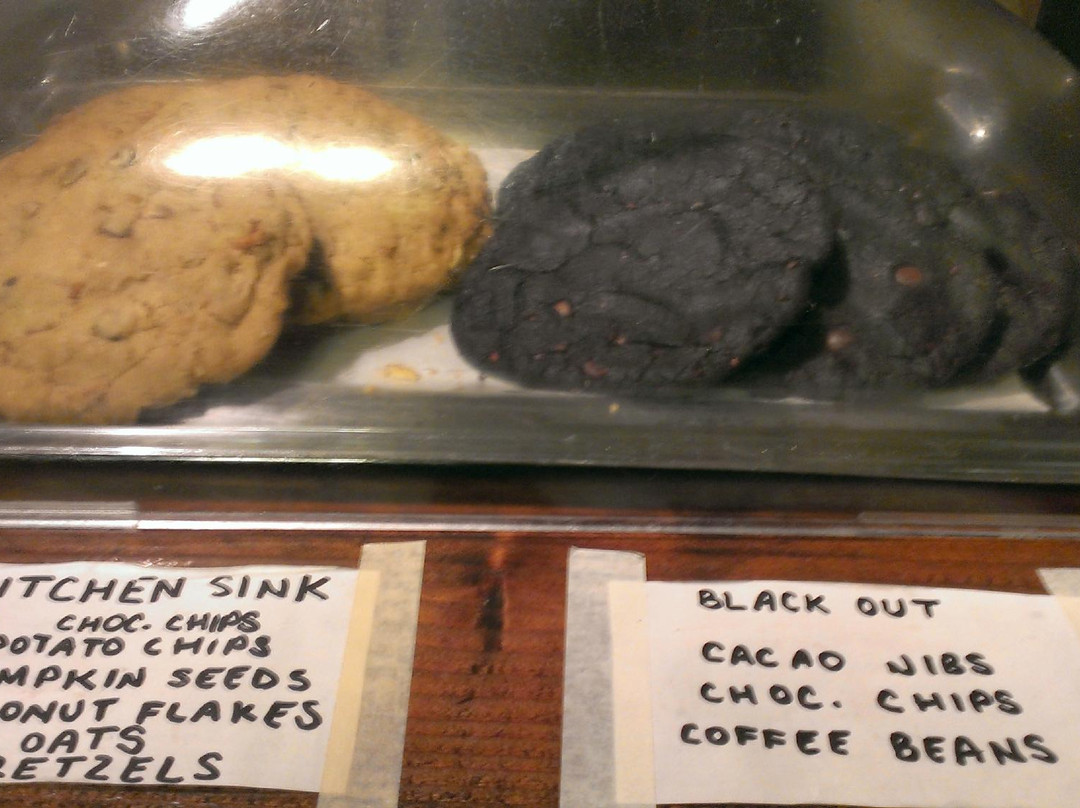 ITCHEN SINK
CHOC. CHIPS
POTATO CHIPS
MPKIN SEEDS
ONUT FLAKES
OATS
RETZELS
BLACK OUT
CACAO NIBS
CHOC. CHIPS
COFFEE BEANS